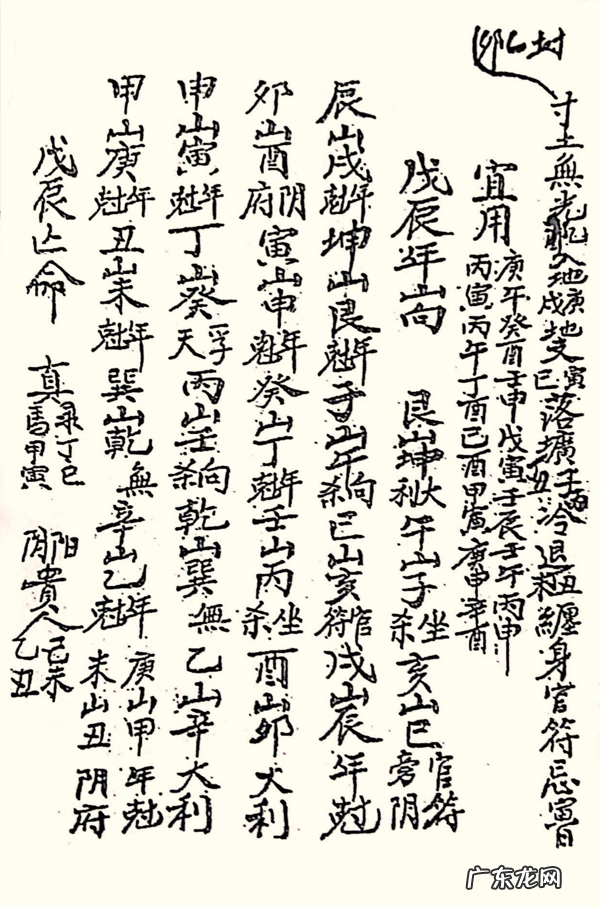 寸土無光
入地
地支
落擴
冷退
纏身官符忌寅日
宜用
庚午癸酉壬申戊寅壬辰壬午丙申
丙寅丙午丁酉己酉甲寅庚申辛酉
戊辰年山向　艮山坤大利　午山子坐杀　亥山巳官符旁阴
辰山戌年尅　坤山艮年尅　子山午向杀　巳山亥官符　戌山辰年尅
夘山酉阴府　寅山申年尅　癸山丁年尅　壬山丙坐杀　酉山夘大利
申山寅年尅　丁山癸浮天　丙山壬向杀　乾山巽無　乙山辛大利
甲山庚年尅　丑山未年尅　巽山乾無　辛山乙年尅　庚山甲年尅　未山丑阴府
戊辰亡命　真禄丁巳　馬甲寅　阳貴人己未　阴貴人乙丑
广东龙网